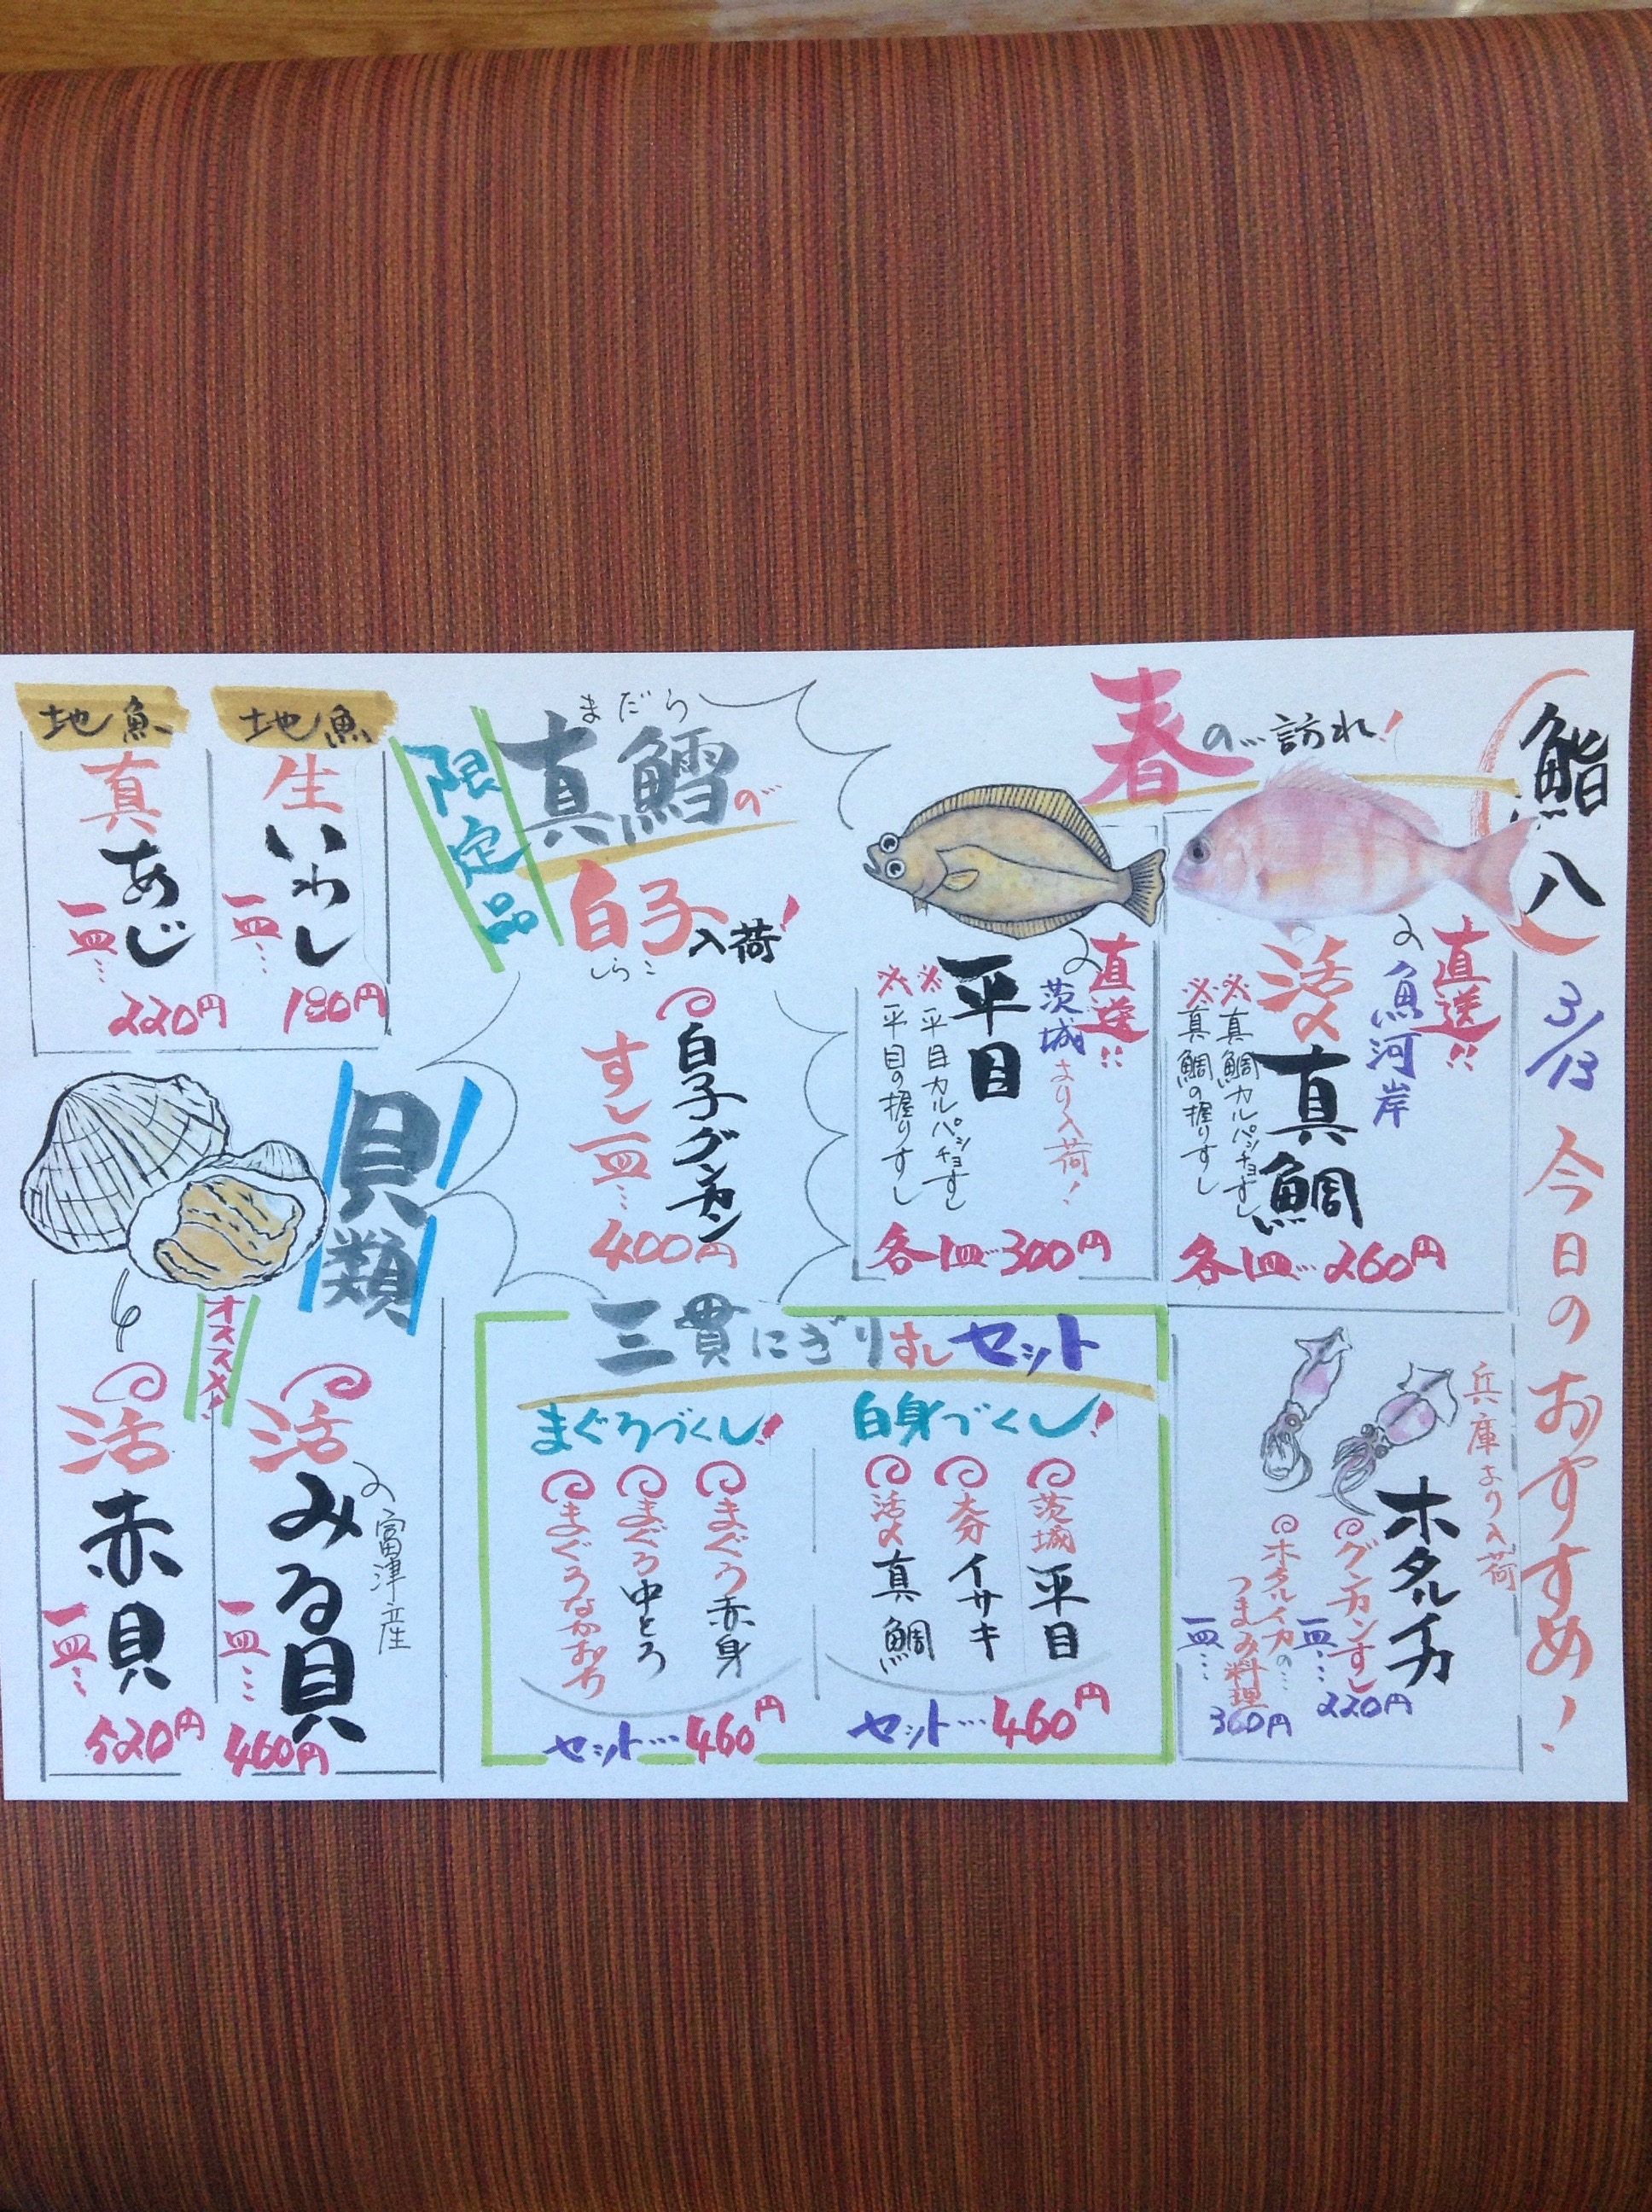 鮨八
3/13 今日のおすすめ!
春の…訪れ!
直送!!
魚河岸
活〆真鯛
※真鯛カルパッチョすし
※真鯛の握りすし
各1皿…260円
直送!!
茨城より入荷!
平目
※平目カルパッチョすし
※平目の握りすし
各1皿…300円
兵庫より入荷
ホタルイカ
グンカンすし
一皿…220円
ホタルイカの…
つまみ料理
一皿…360円
限定品
まだら
真鱈の
白子入荷!
しらこ
白子グンカン
すし一皿…
400円
三貫にぎりすしセット
白身づくし!
茨城平目
大分イサキ
活〆真鯛
セット…460円
まぐろづくし!
まぐろ赤身
まぐろ中とろ
まぐろなかおち
セット…460円
地魚
生いわし
一皿…
180円
地魚
真あじ
一皿…
220円
貝類
オススメ!
富津産
活みる貝
一皿…
460円
活赤貝
一皿…
520円